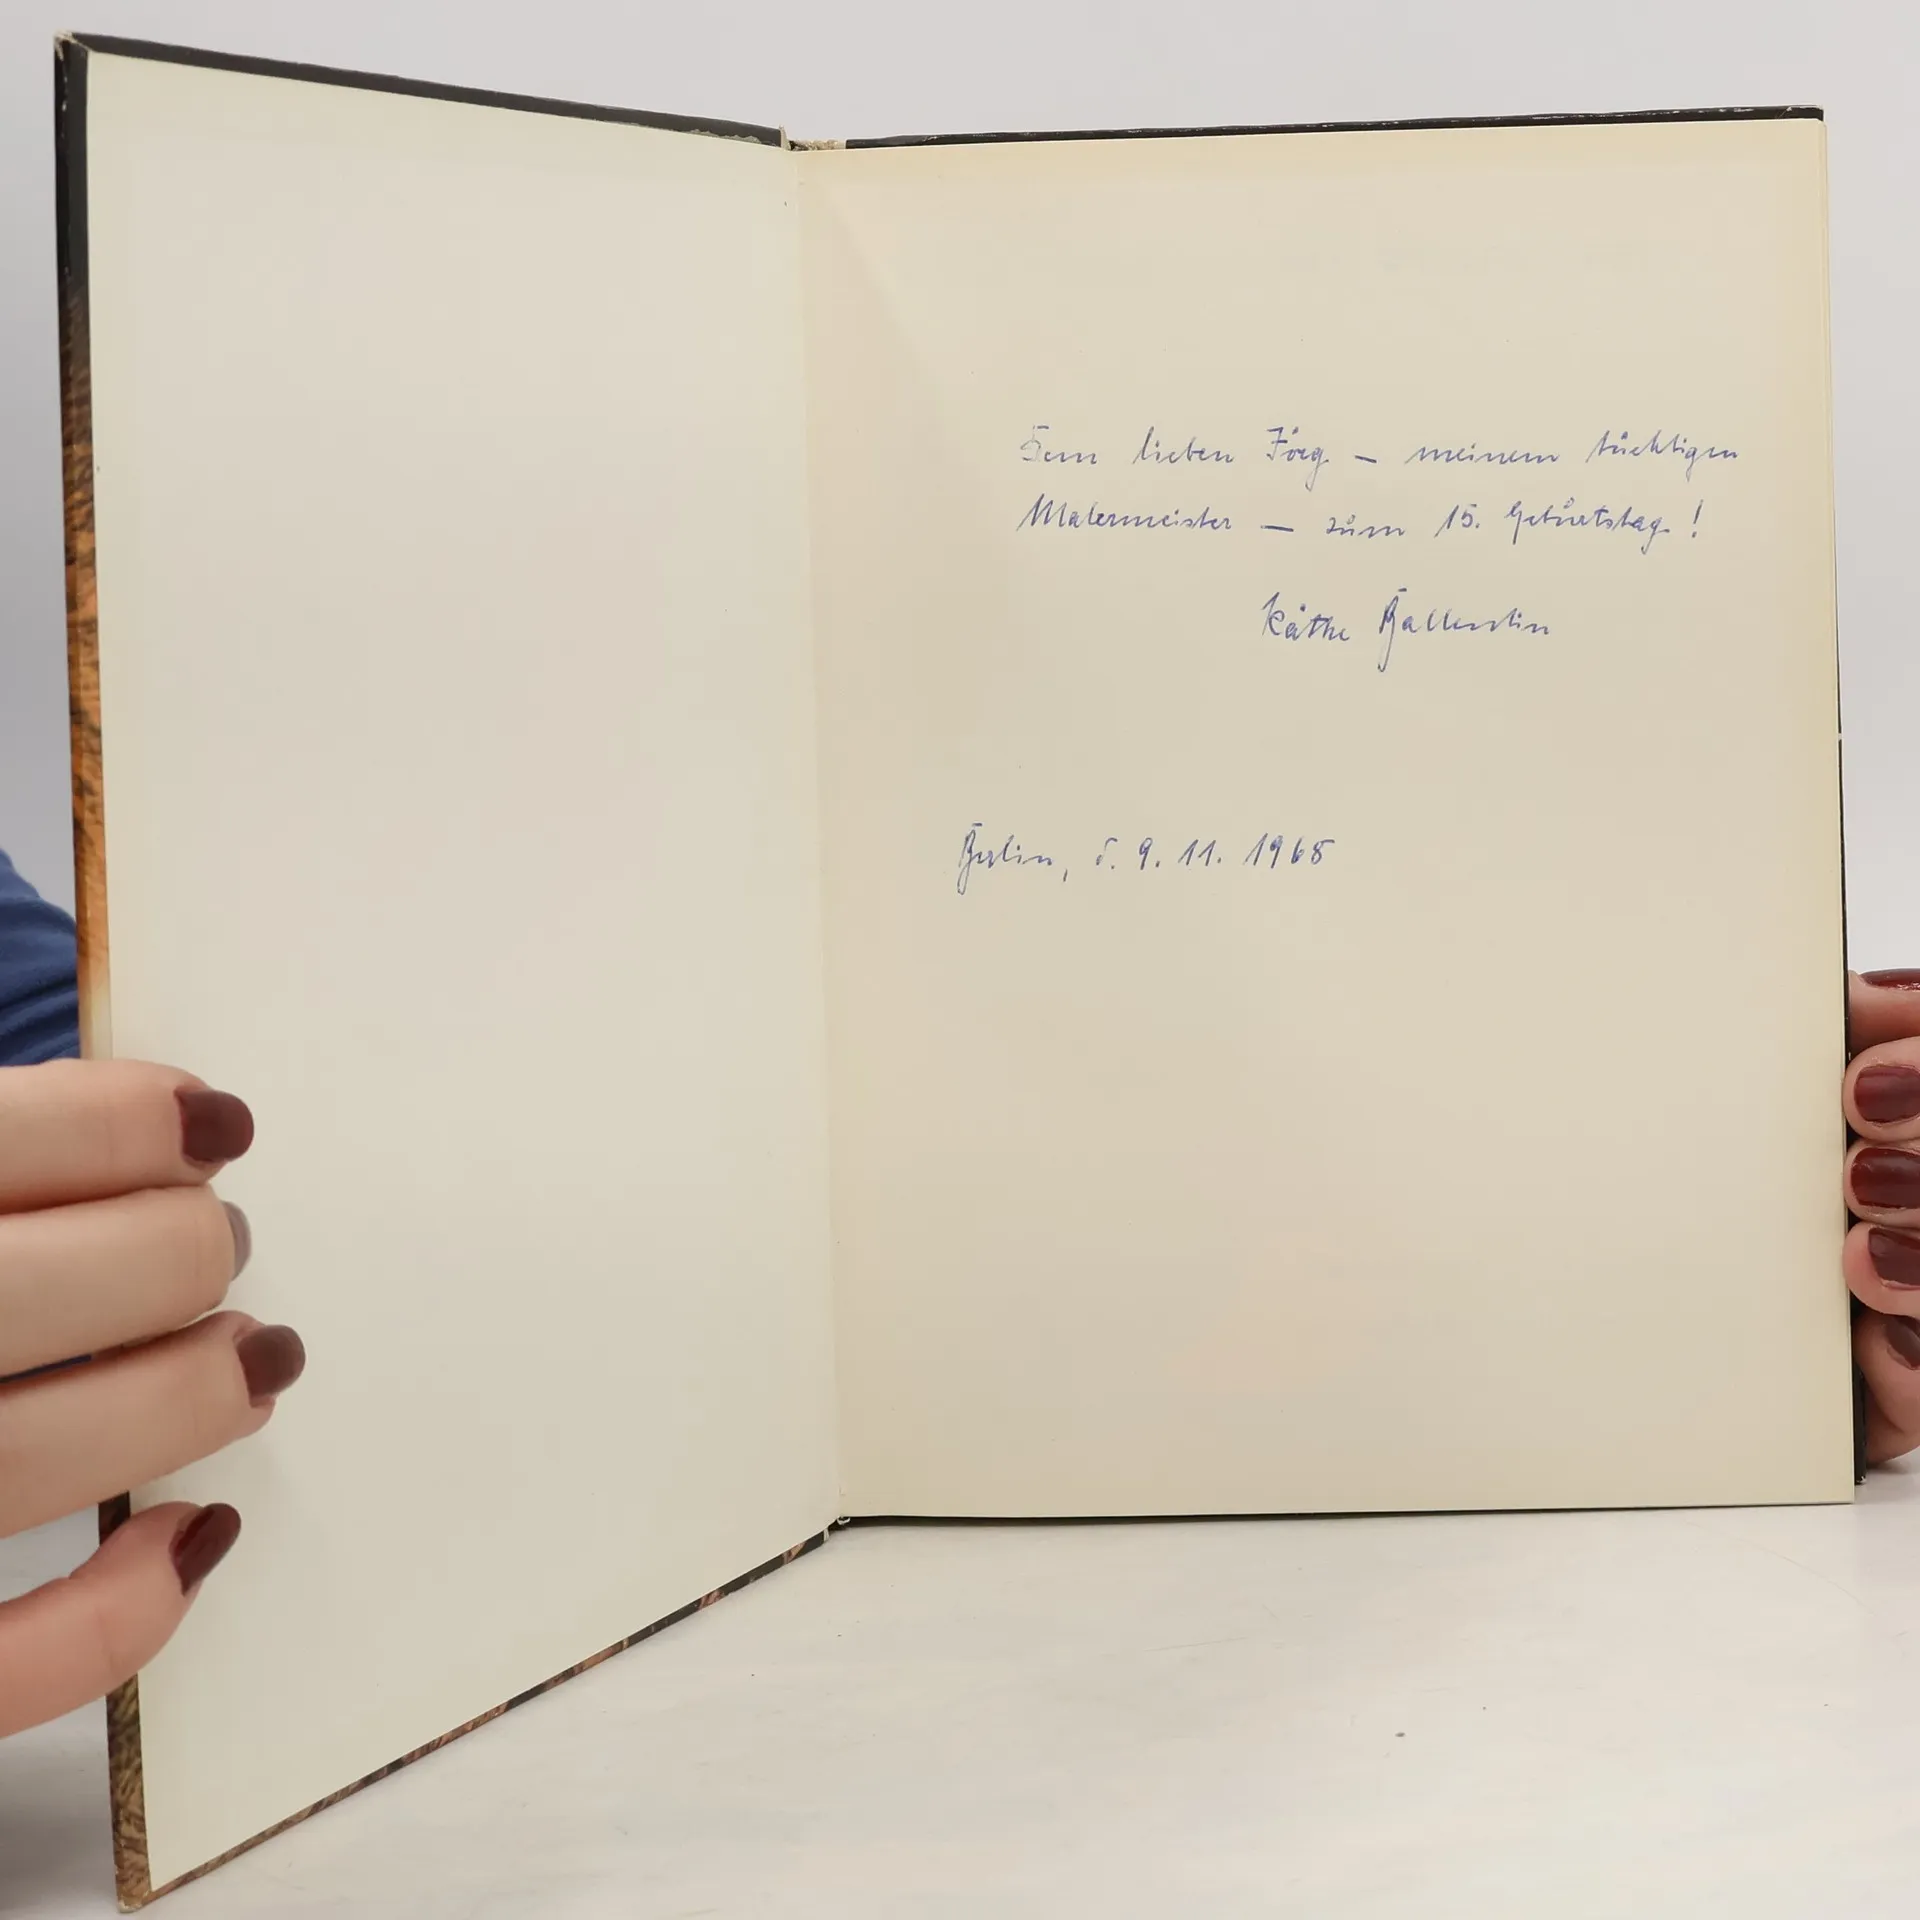 Dem lieben Jörg – meinem tüchtigen
Malermeister – zum 15. Geburtstag!
Käthe Ballentin
Berlin, d. 9. 11. 1965